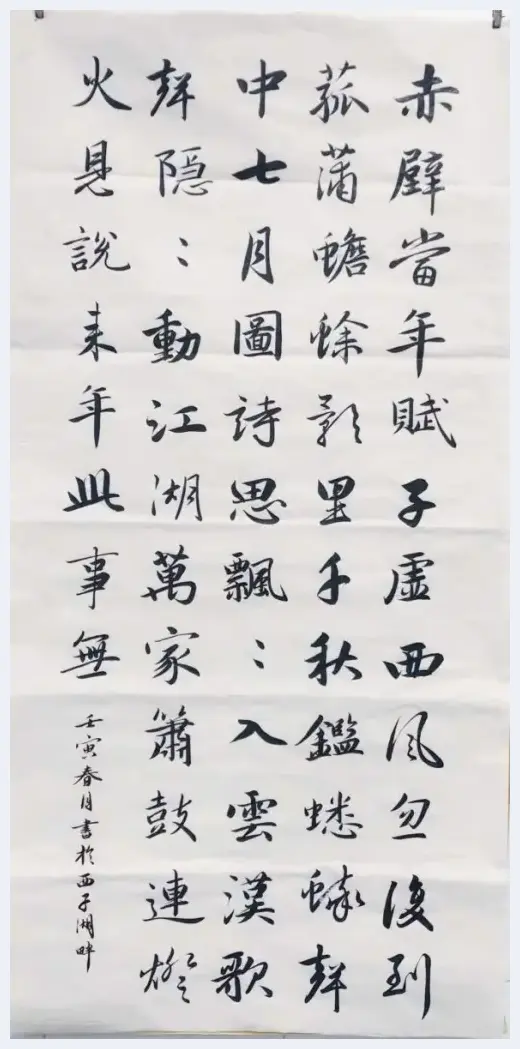 赤壁當年賦子虛西風忽復到
菰蒲蟾蜍影里千秋鑑蟋蟀聲
中七月圖詩思飄〻入雲漢歌
聲隱〻動江湖萬家簫鼓連燈
火見說来年此事無
壬寅春月書於西子湖畔